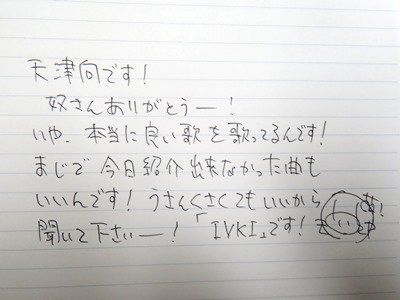 天津向です!
奴さんありがとうー!
いや、本当に良い歌を歌ってるんです!
まじで今日紹介出来なかった曲も
いいんです!うさんくさくてもいいから
聞いて下さいー!「IVKI」です!